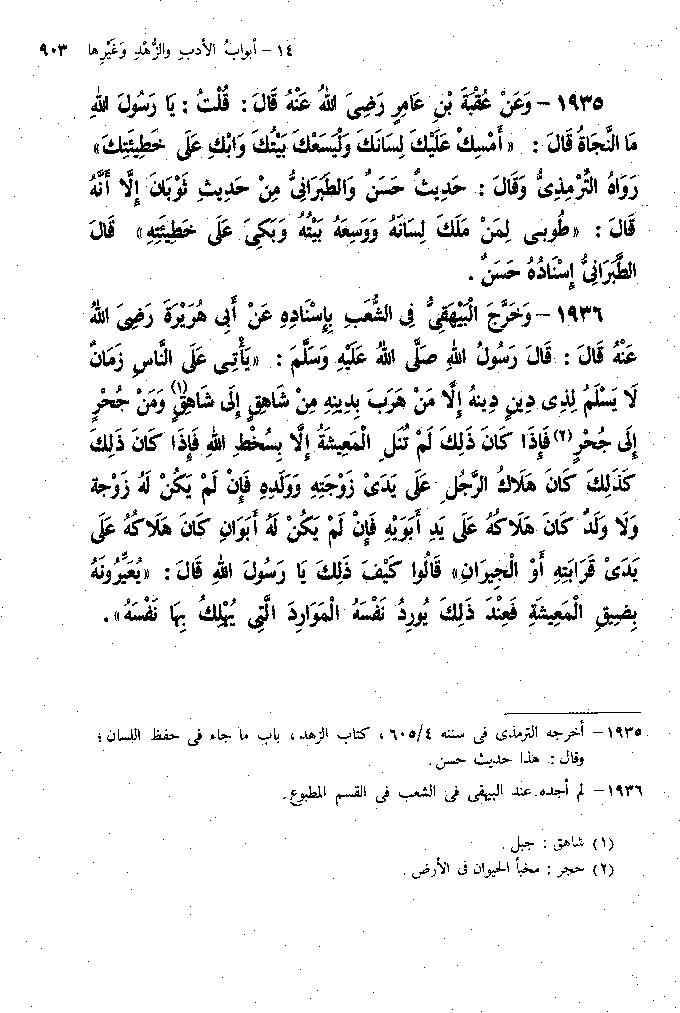 ١٤ - أبوابُ الأدبِ والزُّهْدِ وَغَيْرِها ٩٠٣
١٩٣٥ - وَعَنْ عُقْبَةَ بْنِ عَامِرٍ رَضِىَ اللهُ عَنْهُ قَالَ : قُلْتُ : يَا رَسُولَ اللهِ
مَا النَّجَاةُ قَالَ : «أَمْسِكْ عَلَيْكَ لِسَانَكَ وَلْيَسَعْكَ بَيْتُكَ وَابْكِ عَلَى خَطِيئَتِكَ»
رَوَاهُ التِّرْمِذِىُّ وَقَالَ : حَدِيثٌ حَسَنٌ وَالطَّبَرَانِىُّ مِنْ حَدِيثِ ثَوْبَانَ إِلَّا أَنَّهُ
قَالَ : «طُوبَى لِمَنْ مَلَكَ لِسَانَهُ وَوَسِعَهُ بَيْتُهُ وَبَكِىَ عَلَى خَطِيئَتِهِ» قَالَ
الطَّبَرَانِىُّ إِسْنَادُهُ حَسَنٌ .
١٩٣٦ - وَخَرَّجَ الْبَيْهَقِىُّ فِى الشُّعَبِ بِإِسْنَادِهِ عَنْ أَبِى هُرَيْرَةَ رَضِىَ اللهُ
عَنْهُ قَالَ : قَالَ رَسُولُ اللهِ صَلَّى اللهُ عَلَيْهِ وَسَلَّمَ : «يَأْتِى عَلَى النَّاسِ زَمَانٌ
لَا يَسْلَمُ لِذِى دِينٍ دِينهُ إِلَّا مَنْ هَرَبَ بِدِينِهِ مِنْ شَاهِقٍ إِلَى شَاهِقٍ(١) وَمَنْ جُحْرٍ
إِلَى جُحْرٍ(٢) فَإِذَا كَانَ ذَلِكَ لَمْ تُنَلِ الْمَعِيشَةُ إِلَّا بِسُخْطِ اللهِ فَإِذَا كَانَ ذَلِكَ
كَذَلِكَ كَانَ هَلَاكُ الرَّجُلِ عَلَى يَدَىْ زَوْجَتِهِ وَوَلَدِهِ فَإِنْ لَمْ يَكُنْ لَهُ زَوْجة
وَلَا وَلَدٌ كَانَ هَلَاكُهُ عَلَى يَدِ أَبَوَيْهِ فَإِنْ لَمْ يَكُنْ لَهُ أَبَوَانِ كَانَ هَلَاكُهُ عَلَى
يَدَىْ قَرَابَتِهِ أَوْ الْجِيرَانِ» قَالُوا كَيْفَ ذَلِكَ يَا رَسُولَ اللهِ قَالَ : «يُعَيِّرُونَهُ
بِضِيقِ الْمَعِيشَةِ فَعِنْدَ ذَلِكَ يُورِدُ نَفْسَهُ الْمَوَارِدَ الَّتِى يُهْلِكُ بِهَا نَفْسَهُ» .
١٩٣٥ - أخرجه الترمذى فى سننه ٦٠٥/٤ ، كتاب الزهد ، باب ما جاء فى حفظ اللسان ؛
وقال : هذا حديث حسن .
١٩٣٦ - لم أجده عند البيهقى فى الشعب فى القسم المطبوع .
(١) شاهق : جبل .
(٢) حجر : مخبأ الحيوان فى الأرض .